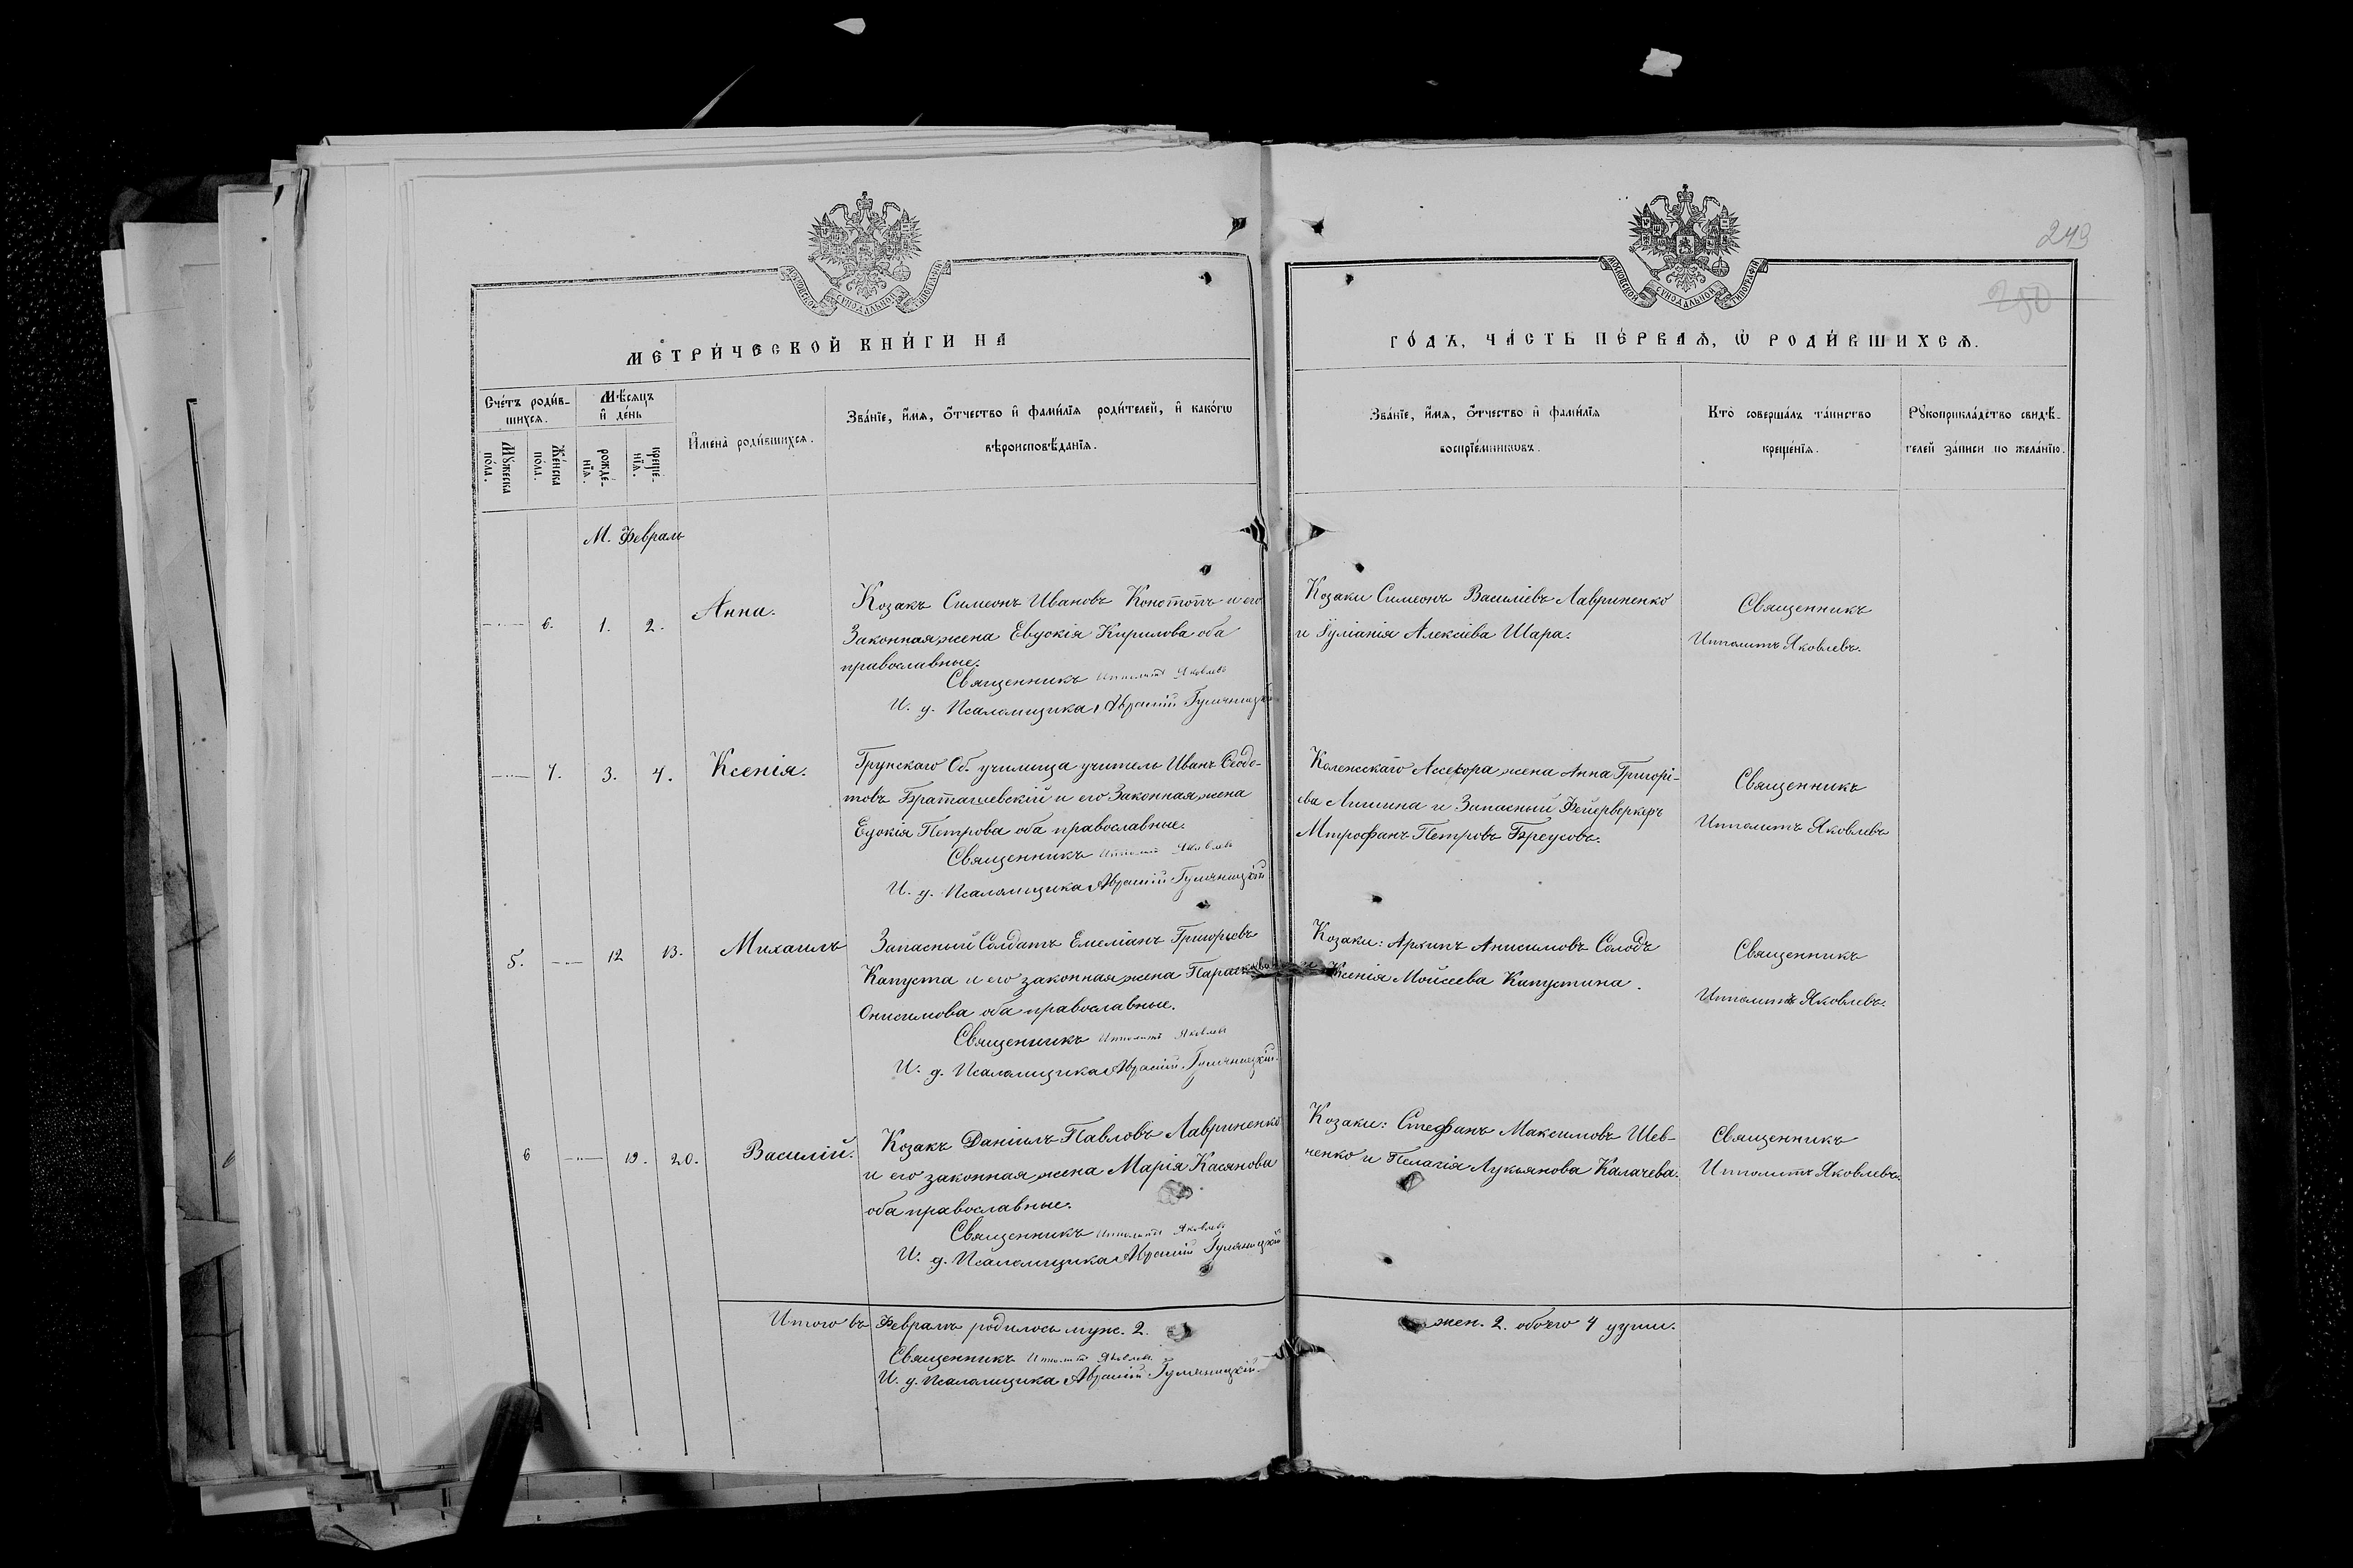 249
250
МОСКОВСКОЙ СУНОДАЛЬНОЙ ТИПОГРАФІИ
МОСКОВСКОЙ СУНОДАЛЬНОЙ ТИПОГРАФІИ
МЕТРИ́ЧЕСКОЙ КНИ́ГИ НА
ГО́ДЪ, ЧА́СТЬ ПЕ́РВАѦ, Ѡ РОДИ́ВШИХСѦ.
Сче́тъ роди́в-
шихсѧ.
Му́жеска
по́ла.
Же́нска
по́ла.
Мѣ́сѧцъ
и҆ де́нь
рожде́-
нїѧ.
креще́-
нїѧ.
И҆мена̀ роди́вшихсѧ.
Зва́нїе, и҆́мѧ, ѻ҆́тчество и҆ фами́лїѧ роди́телей, и҆ како́гѡ
вѣроисповѣ́данїѧ.
Зва́нїе, и҆́мѧ, ѻ҆́тчество и҆ фами́лїѧ
воспрїе́мникѡвъ.
Кто̀ соверша́лъ та́инство
креще́нїѧ.
Рꙋкоприкла́дство свидѣ́-
телей за́писи по жела́нїю.
М. Февраль
6. 1. 2. Анна.
Козакъ Симеонъ Ивановъ Конотопъ и его
Законная жена Евдокія Кирилова оба
православные.
Священникъ Ипполитъ Яковлевъ
И. д. Псаломщика
Козаки Симеонъ Василіевъ Лавриненко
и Іуліанія Алексіева Шара.
Священникъ
Ипполитъ Яковлевъ.
7. 3. 4. Ксенія.
Грунскаго Об. училища учитель Иванъ Ѳеодо-
товъ Браташевскій и его Законная жена
Едокія Петрова оба православные.
Священникъ Ипполитъ Яковлевъ
И. д. Псаломщика
Колежскаго Ассесора жена Анна Григорі-
ева Лишина и Запасный Фейерверкеръ
Митрофанъ Петровъ Бреусовъ.
Священникъ
Ипполитъ Яковлевъ
5. 12 13. Михаилъ
Запасный Солдатъ Емеліанъ Григорьевъ
Капуста и его законная жена Параскева
Онисимова оба православные.
Священникъ Ипполитъ Яковлевъ
И. д. Псаломщика
Козаки: Архипъ Анисимовъ Солодъ
и Ксенія Мойсеева Капустина.
Священникъ
Ипполитъ Яковлевъ.
6 19. 20. Василій.
Козакъ Даніилъ Павловъ Лавриненко
и его законная жена Марія Касянова
оба православные.
Священникъ Ипполитъ Яковлевъ
И. д. Псаломщика
Козаки: Стефанъ Максимовъ Шев-
ченко и Пелагія Лукьянова Калачева.
Священникъ
Ипполитъ Яковлевъ.
Итого въ Февралѣ родилось муж. 2.
жен. 2. обоего 4 души.
Священникъ Ипполитъ Яковлевъ.
И. д. Псаломщика